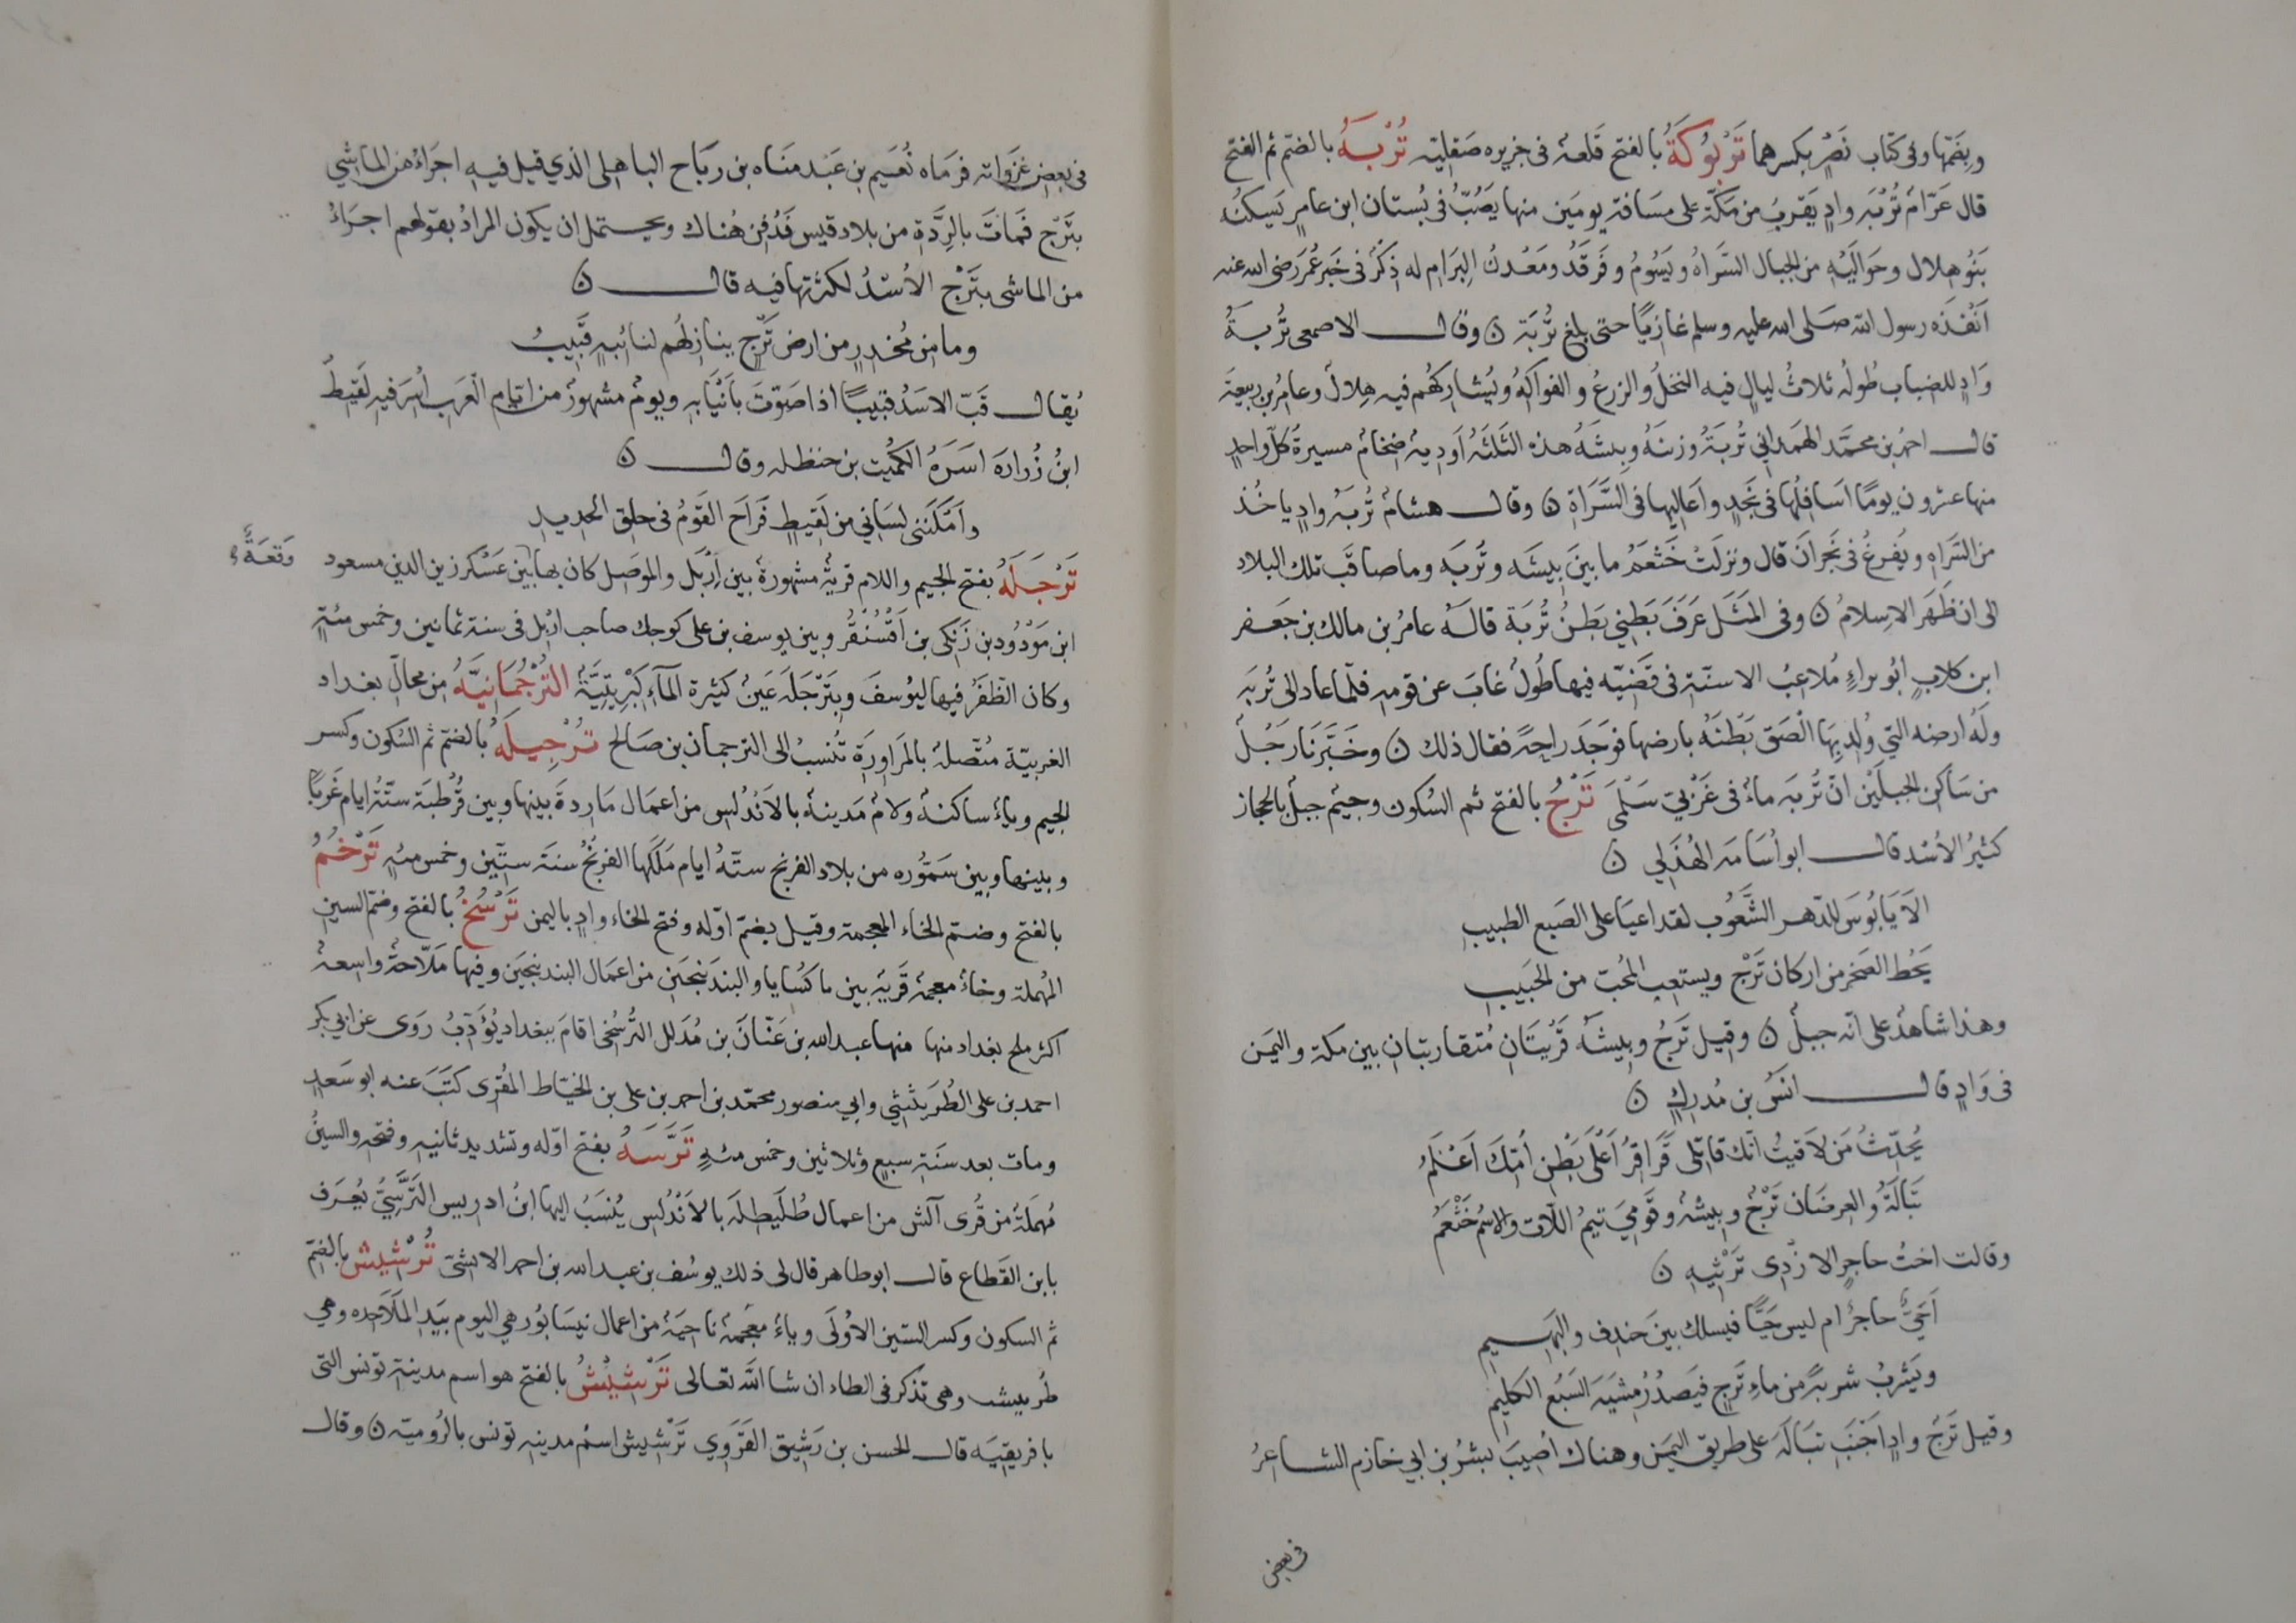 وبضمّها وفى كتاب نَصْرٍ بكسرهما تَرْبُوكَةُ بالفتح قَلعةٌ فى جزيره صَقلية تُرْبَةُ بالضم ثم الفتح
قال عَرّام تُرَبَه وادٍ بقربِ من مكّة على مسَافة يومَين منها يَصُبّ فى بُستان ابن عامرٍ يَسكنُه
بَنُو هلال وحَوالَيْهِ من الجبال السَّراهُ ويَسُومُ وفَرقَدُ ومَعْدنُ البِرَام له ذِكرٌ فى خَبر عُمَر رضى الله عنه
اَنْفَذَه رسول الله صَلى الله عليه وسلم غازيًا حتى بلغ تُرَبَة ن وقال الاصمعى تُرَبَةُ
وَادٍ للضباب طُولُه ثلاثُ ليالٍ فيه النخلُ والزرعُ والفواكهُ ويُشاركُهم فيه هِلالٌ وعامرُ بن ربيعَة
قال احمدُ بن محمَّد الهمَداني تُرَبَةُ وزنيَهُ وبيشَهُ هذه الثَلثَهُ اَوديةٌ ضخامٌ مسيرةُ كلّ واحدٍ
منها عشرون يومًا اَسَافِلُها فى نَجدٍ واَعَاليها فى السَّرَاةِ ن وقال هشامٌ تُرَبَةُ وادٍ ياخُذ
من السَراه ويُفرغُ فى نَجرانَ قال ونزلَتْ خَثعَمُ ما بينَ بِيشَه وتُرَبَه وما صاقَبَ تلك البلاد
الى ان ظَهَر الاسِلامُ ن وفى المَثَل عَرَفَ بَطْنِي بَطنُ تُرَبَة قالَهُ عامرُ بن مالك بن جَعفر
ابن كلابٍ ابُو براءٍ مُلاعبُ الاسنّة فى قَضيّه فيها طُولٌ غابَ عن قومه فلمّا عاد الى تُرَبَه
ولَهُ ارضه التي وُلِد بِهَا اَلْصَقَ بَطْنَهُ بارضها فوَجَدَ راحةً فقال ذلك ن وخَبَّرنَا رَجُلٌ
من سَاكنى الجبلَيْن انّ تُرَبَه ماءٌ فى غَرْبيّ سَلْمَى تَرْجُ بالفتح ثم السُكون وجيمٌ جبلٌ بالحجاز
كثيرُ الاُسْد قال ابو اُسَامَه الهُذَلي ن
الَا يَا بُوسَ للدّهر الشَّعُوب لقد اعيَا على الصَبع الطبيبِ
يَحُطّ الصَخر من اركان تَرْج ويستعب المُحبّ من الحَبيبِ
وهذا شاهدٌ على انّه جبلٌ ن وقيل تَرْجُ وبيشَهُ قَريَتَانِ مُتقاربتانِ بين مكة واليَمن
فى وَادٍ قال انَسُ بن مُدركٍ ن
يُحَدّثُ مَن لاقيتُ انّك قاتلى قَراقِرُ اَعْلَى بَطْنِ اُمّكَ اَعْلَمُ
تَبَالَةُ والعِرضَان تَرْجٌ وبيشةٌ وقَومِي تيمُ اللّات والاسْمُ خَثْعَمُ
وقالت اختُ حاجزٍ الازْدى تَرثيه ن
اَحَيٌّ حاجزٌ ام ليس حَيًّا فيسلك بينَ خندف والبَهيم
ويَشربُ شربةً من ماءِ تَرجٍ فيَصدُرُ مِشيَةَ السَبُع الكليم
وقيل تَرْجُ وادٍ اِجَنبَ تبَالَه على طريق اليمَن وهناك اُصيبَ بشرُ بن ابي خازم الشاعرُ
فى بعض
فى بعض غزَواته فرمَاه نُعَيم بن عَبد منَاه بن ربَاح الباهلى الذي قيل فيه اجرَاُ من الماشي
بتَرْج فماتَ بالرِدَّةِ من بلاد قيس فَدُفن هُناك ويحتمل ان يكون المرادُ بقولهم اجرَاُ
من الماشى بتَرْج الاُسْدُ لكثرتها فيه قال ن
وما من مُخدرٍ من ارض تَرجٍ ينازلُهم لنائبهِ قَبِيبُ
يُقال قَبّ الاسَدُ قبيبًا اذا صَوّتَ بأَنْيَابه ويومٌ مشهورٌ من ايّام العَرب اُسِرَ فيه لَقيطُ
ابنُ زُرارة اسَرَهُ الكُميت بن حنظله وقال ن
واَمكَنني لسَاني من لَقيطٍ فَراحَ القَومُ فى حلق الحديد
تَرْجَلَهُ بفتح الجيم واللام قريةٌ مشهورةٌ بين اِرْبَل والموَصل كان بها بين عَسْكر زين الدين مسعود
وَقعَةٌ
ابن مَوْدُود بن زَنكى بن اَقْسُنْقُر وبين يوسف بن على كوجك صاحب اربل فى سنة ثمانين وخمس مئةٍ
وكان الظفَرُ فيها ليُوسفَ وبتَرْجَلَهَ عَينٌ كثيرة المآءِ كبْرِيتيَّةٌ التُرْجُمَانِيَّهُ من محالّ بغداد
الغربيّة متّصلةٌ بالمرَاورَةِ تُنسبُ الى الترجمان بن صَالح تُرْجِيلَهُ بالضم ثم السُكون وكسر
الجيم وياءٌ ساكنةٌ ولامٌ مَدينةٌ بالاَندُلس من اعمَال مَارِدةَ بينها وبين قُرْطبَة ستّةُ ايام غَربًا
وبينها وبين سَمّوره من بلاد الفرنج ستّهُ ايام مَلَكها الفرنجُ سنَة ستّين وخمس مئهٍ تَرْخُمُ
بالفتح وضم الخاء المعجمة وقيل بضم اوّله وفتح الخاء وادٍ باليمن تَرْسُخُ بالفتح وضمّ السين
المُهملة وخاءٌ معجمة قَريةٌ بين ماكسَايا والبندَنيجَين من اعمال البندنيجَين وفيها مَلّاحةٌ واسعةٌ
اكثر ملح بغداد منها منها عبد الله بن عَنّانَ بن مُدَلل التَّرسُخى اقامَ ببغداد يُؤَدّبُ رَوى عن ابي بكر
احمد بن على الطُرَيثيثي وابي منصور محمّد بن احمد بن على بن الخيّاط المقرى كتَبَ عنه ابو سَعدٍ
ومات بعد سنَة سبعٍ وثلاثين وخمس مئةٍ تَرَّسَهُ بفتح اوّله وتشديد ثانيه وفتحه والسينُ
مُهملةٌ من قُرى آلش من اعمال طُلَيطلَة بالاَنْدلُس يُنسَبُ اليها ابنُ ادريس التَرَّسِيُّ يُعرَف
بابن القطاع قال ابو طاهر قال لى ذلك يوسُف بن عبد الله بن احمد الاشىّ تُرْشِيش بالضم
ثم السكون وكسر الشين الاُولى وياءٌ معجمةٌ ناحيةٌ من اعمال نيسَابُور هى اليوم بيَد المَلاحِده وهى
طُريبيث وهى تذكر فى الطاء ان شا الله تعالى تَرْشِيْشُ بالفتح هو اسم مدينة تونس التى
بافريقيَه قال الحسن بن رَشيق القَرَوي تَرْشيش اسمُ مدينه تونس بالرُومية ن وقال